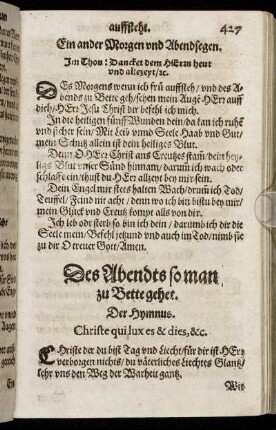 auffsteht. 427
Ein ander Morgen vnd Abendsegen.
Im Thon: Dancket dem HErrn heut
vnd allezeyt/ꝛc.
DEs Morgens wenn ich frü auffsteh/ vnd des A-
bends zu Bette geh/ sehen mein Auge HErr auff
dich/ HErr Jesu Christ dir befehl ich mich.
In die heiligen fünff Wunden dein/ da kan ich ruhē
vnd sicher sein/ Mit Leib vnnd Seele Haab vnd Gut/
mein Schutz allein ist dein heiliges Blut.
Denn O HErr Christ ans Creutzes stam̄/ dein hey-
ligs Blut vnser Sünd hinnam/ darum̄ ich wach oder
schlaffe ein/ thust du HErr allzeyt bey mir sein.
Dein Engel mir stets halten Wach/ drum̄ ich Tod/
Teuffel/ Feind nit acht/ denn wo ich bin bistu bey mir/
mein Glück vnd Creutz kompt alls von dir.
Ich leb od' sterb/ so bin ich dein/ darum̄b ich dir die
Seele mein/ Befehl jetzund vnd auch im Tod/ nimb sie
zu dir O trewer Gott/ Amen.
Des Abendts so man
zu Bette gehet.
Der Hymnus.
Christe qui lux es & dies, &c.
CHriste der du bist Tag vnd Liecht/ für dir ist HErr
verborgen nichts/ du väterliches Liechtes Glantz/
lehr vns den Weg der Warheit gantz.
Wir